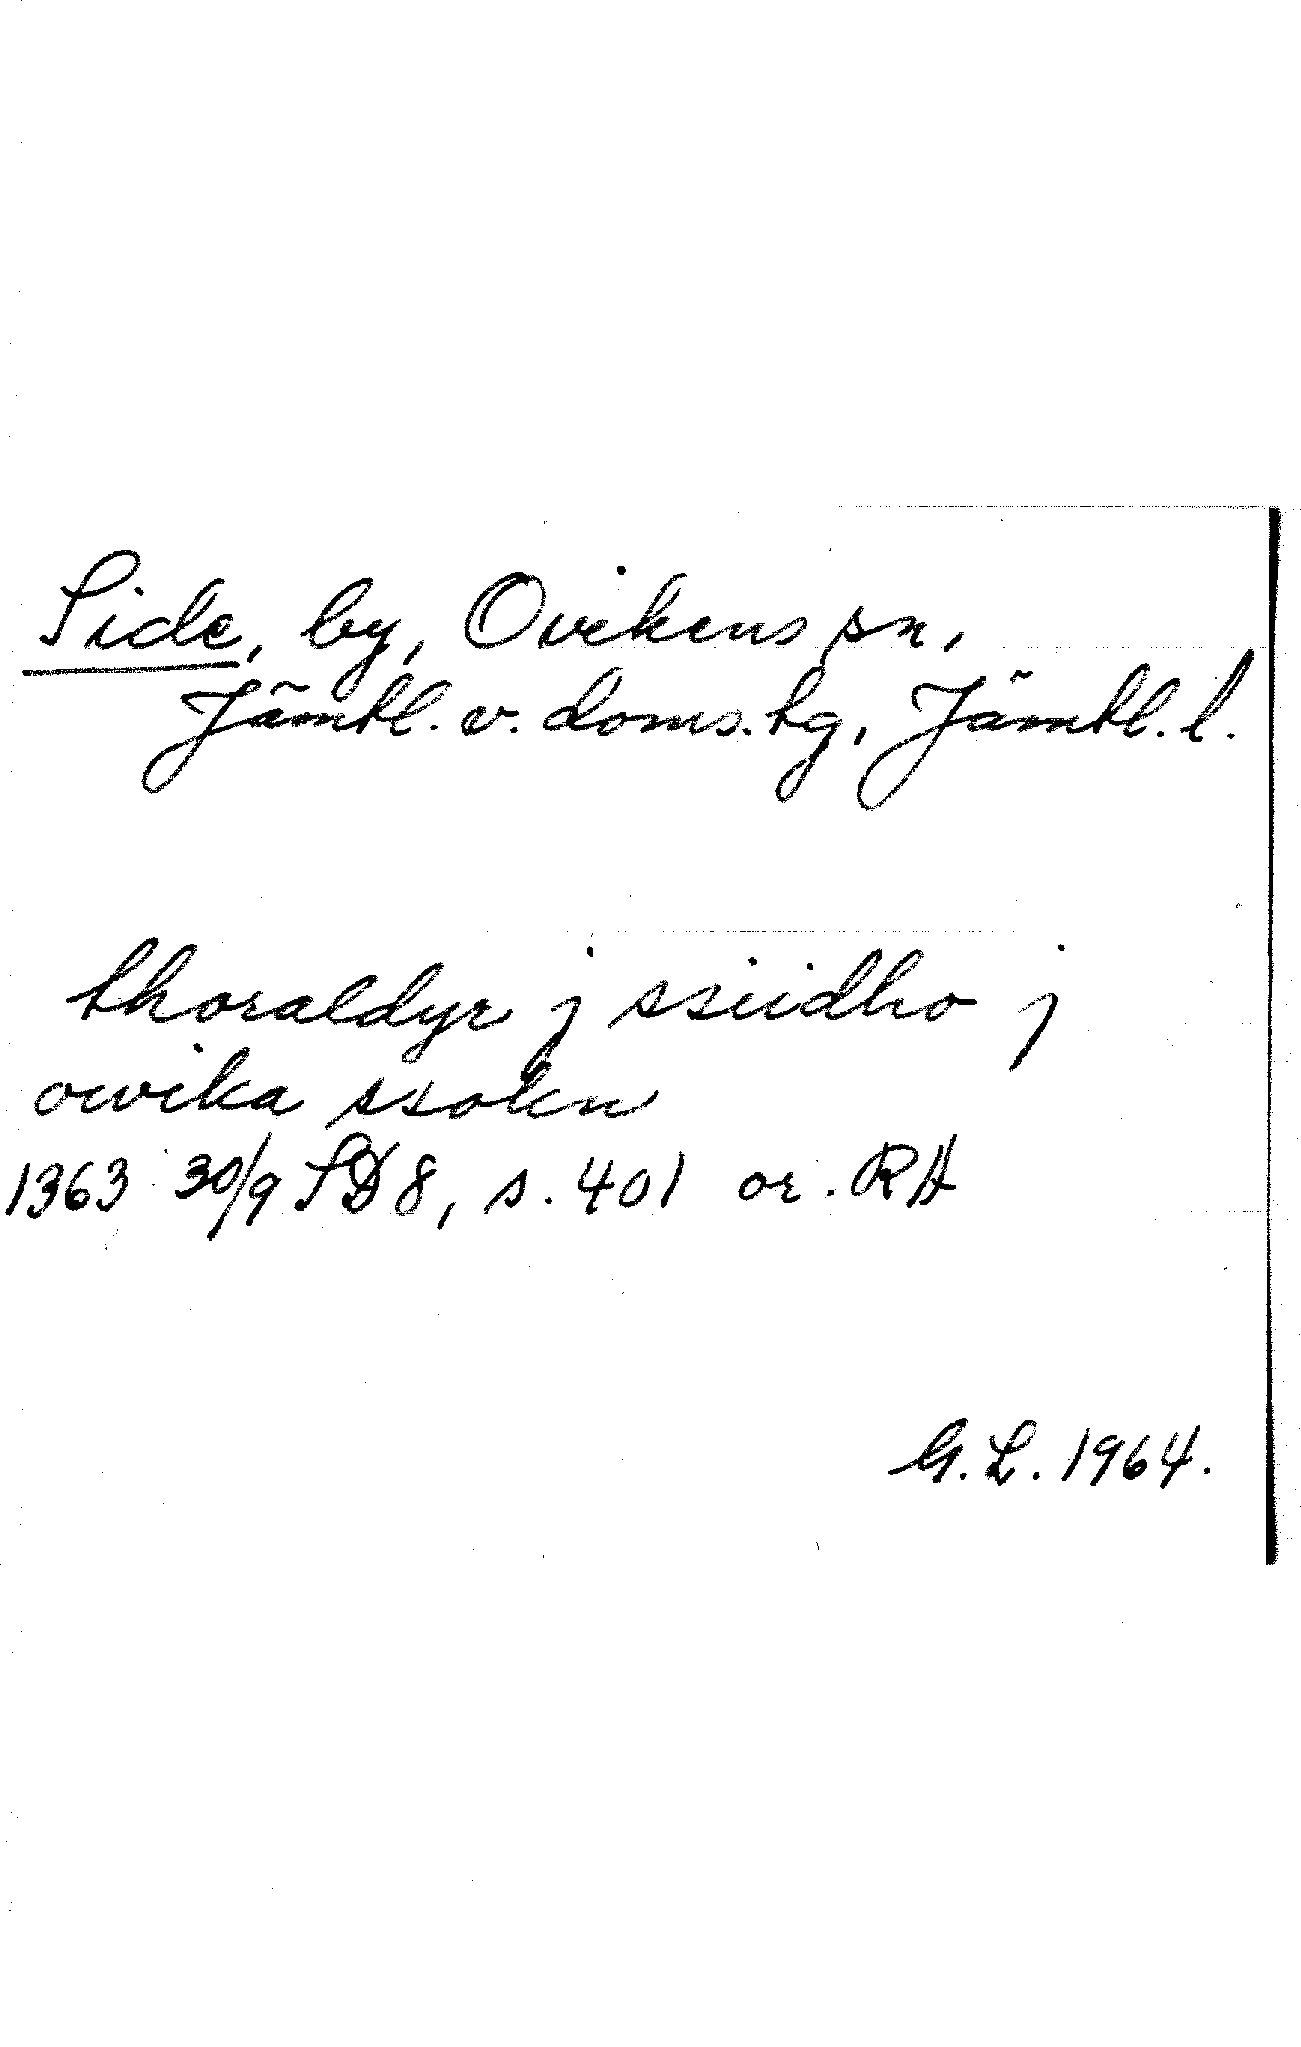 Side, by, Ovikens sn,
Jämtl. v. doms. hg, Jämtl. l.
thoraldyr j ssiidho j
owika ssokn
1363 30/9 SD 8, s. 401 or. RA
G. L. 1964.